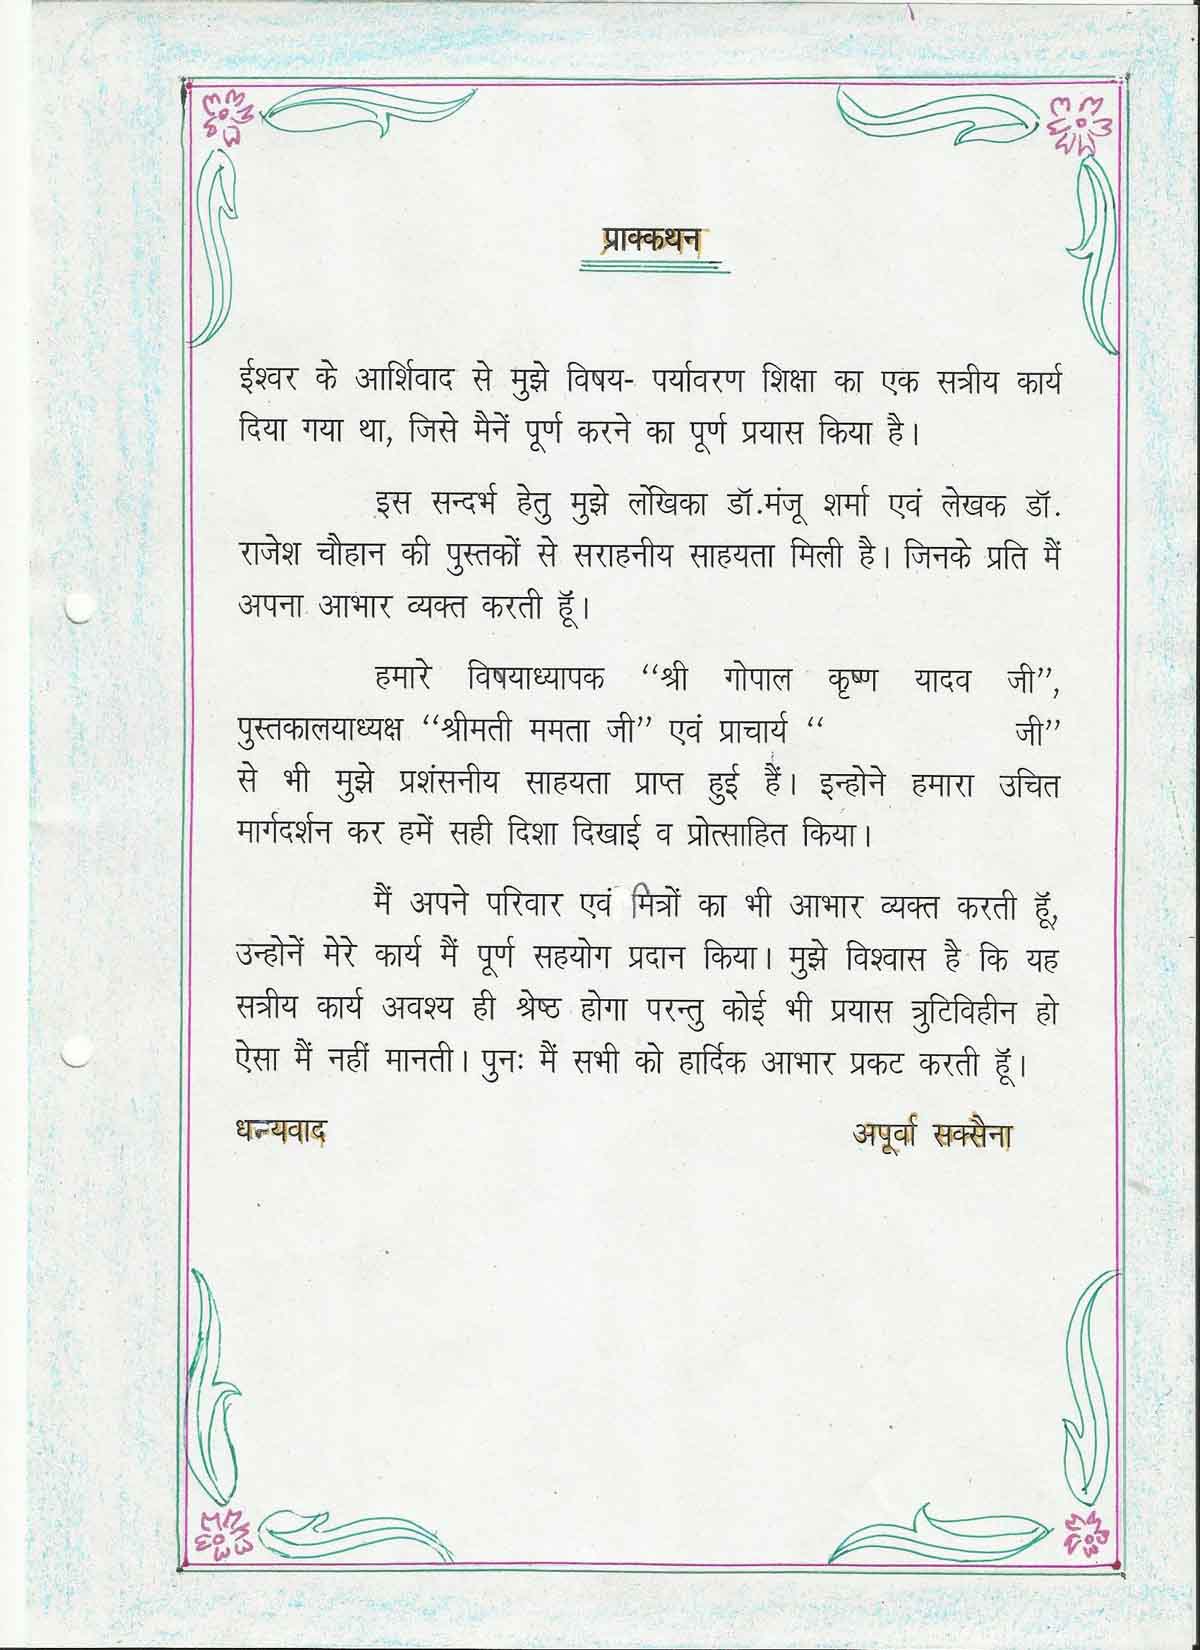 प्राक्कथन
ईश्वर के आर्शिवाद से मुझे विषय- पर्यावरण शिक्षा का एक सत्रीय कार्य
दिया गया था, जिसे मैनें पूर्ण करने का पूर्ण प्रयास किया है।
इस सन्दर्भ हेतु मुझे लेखिका डॉ.मंजू शर्मा एवं लेखक डॉ.
राजेश चौहान की पुस्तकों से सराहनीय साहयता मिली है। जिनके प्रति मैं
अपना आभार व्यक्त करती हॅू।
हमारे विषयाध्यापक “श्री गोपाल कृष्ण यादव जी”,
पुस्तकालयाध्यक्ष “श्रीमती ममता जी” एवं प्राचार्य “ जी”
से भी मुझे प्रशंसनीय साहयता प्राप्त हुई हैं। इन्होने हमारा उचित
मार्गदर्शन कर हमें सही दिशा दिखाई व प्रोत्साहित किया।
मैं अपने परिवार एवं मित्रों का भी आभार व्यक्त करती हॅू,
उन्होनें मेरे कार्य मैं पूर्ण सहयोग प्रदान किया। मुझे विश्वास है कि यह
सत्रीय कार्य अवश्य ही श्रेष्ठ होगा परन्तु कोई भी प्रयास त्रुटिविहीन हो
ऐसा मैं नहीं मानती। पुनः मैं सभी को हार्दिक आभार प्रकट करती हॅू।
धन्यवाद अपूर्वा सक्सैना